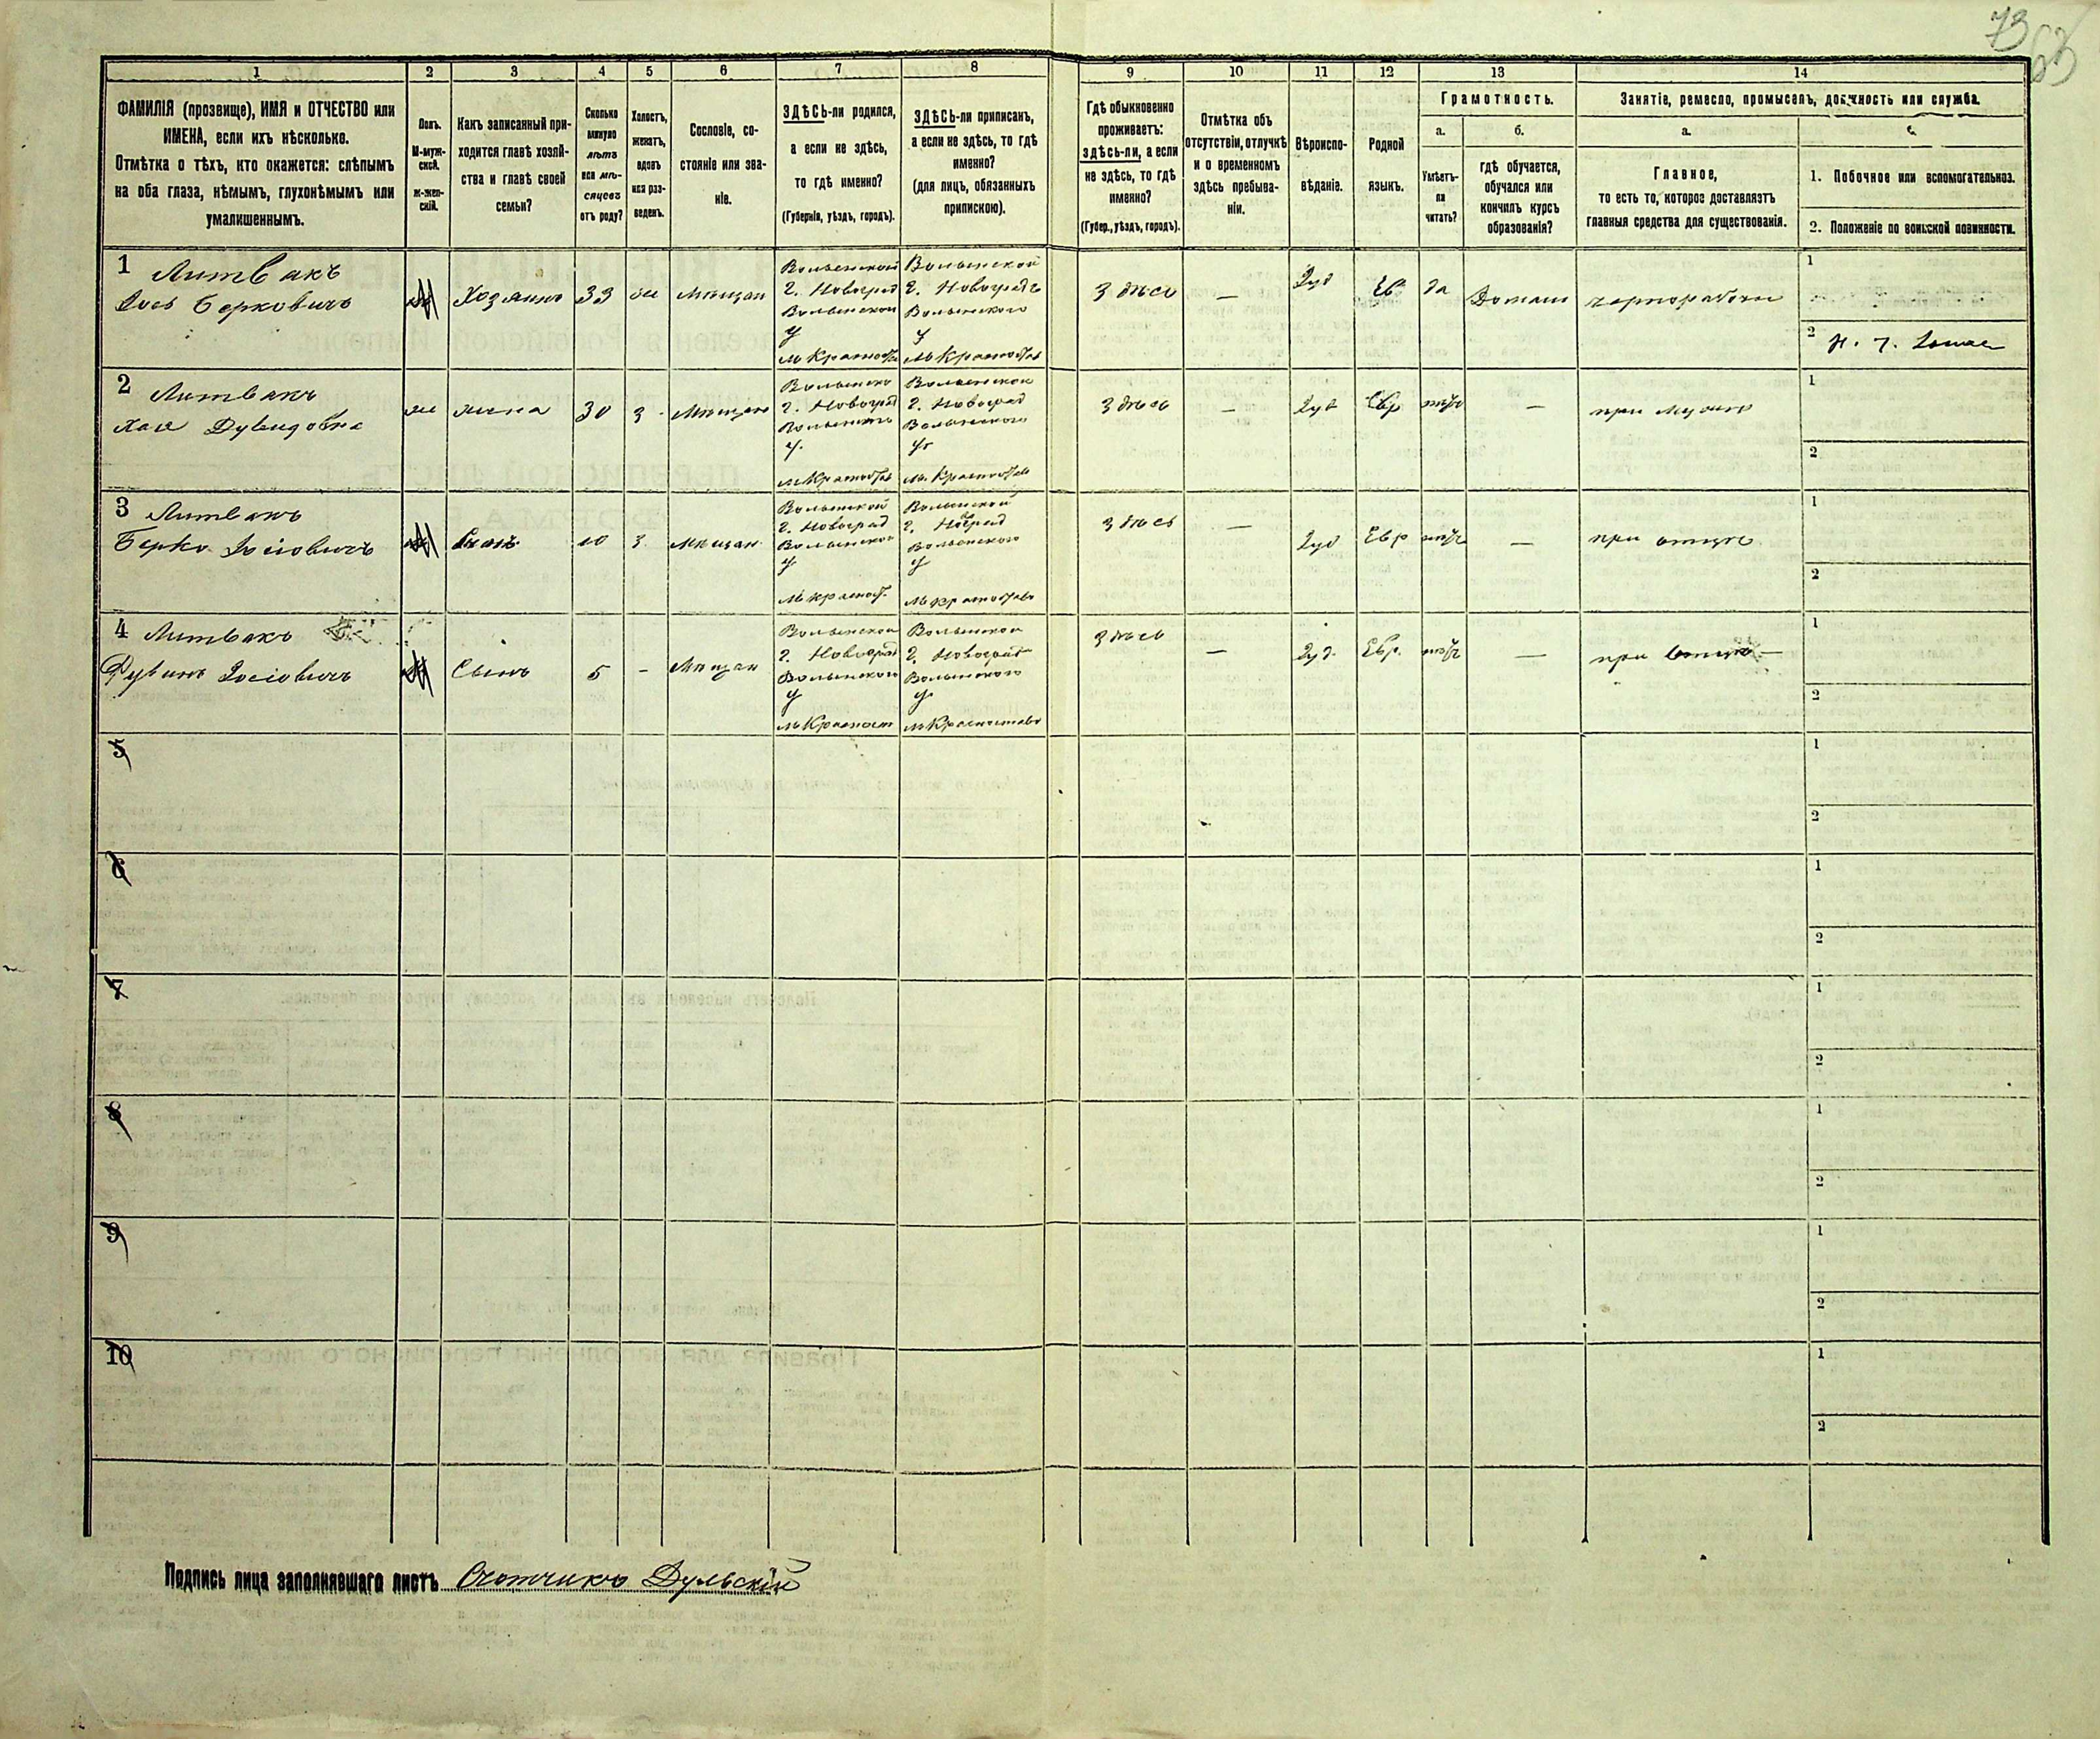 73
63
1
2
3
4
5
6
7
8
9
10
11
12
13
14
ФАМИЛІЯ (прозвище), ИМЯ и ОТЧЕСТВО или
ИМЕНА, если ихъ нѣсколько.
Отмѣтка о тѣхъ, кто окажется: слѣпымъ
на оба глаза, нѣмымъ, глухонѣмымъ или
умалишеннымъ.
Полъ.
М-муж-
ской.
ж-жен-
скій.
Какъ записанный при-
ходится главѣ хозяй-
ства и главѣ своей
семьи?
Сколько
минуло
лѣтъ
или мѣ-
сяцевъ
отъ роду?
Холостъ,
женатъ,
вдовъ
или раз-
веденъ.
Сословіе, со-
стояніе или зва-
ніе.
ЗДѢСЬ-ли родился,
а если не здѣсь,
то гдѣ именно?
(Губернія, уѣздъ, городъ).
ЗДѢСЬ-ли приписанъ,
а если не здѣсь, то гдѣ
именно?
(для лицъ, обязанныхъ
припискою).
Гдѣ обыкновенно
проживаетъ:
здѣсь-ли, а если
не здѣсь, то гдѣ
именно?
(Губер., уѣздъ, городъ).
Отмѣтка объ
отсутствіи, отлучкѣ
и о временномъ
здѣсь пребыва-
ніи.
Вѣроиспо-
вѣданіе.
Родной
языкъ.
Грамотность.
а.
Умѣетъ-
ли
читать?
б.
гдѣ обучается,
обучался или
кончилъ курсъ
образованія?
Занятіе, ремесло, промыселъ, должность или служба.
а.
Главное,
то есть то, которое доставляетъ
главныя средства для существованія.
1. Побочное или вспомогательное.
2. Положеніе по воинской повинности.
1
Литвакъ
Іось Берковичъ
М
Хозяинъ
33
же
Мѣщан
Волынской
г. Новоград
Волынского
у
м Красност
Волынской
г. Новоградъ
Волынского
у
м Красностав
Здѣсь
—
Іуд
Ев
да
Домаш
чернорабочи
1
2
2
Литвакъ
Хая Дувидовна
же
жена
30
з
Мѣщан
Волынско
г. Новоград
Волынского
у.
м Красностав
Волынской
г. Новоград
Волынского
у
м. Красностав
Здѣсь
—
Іуд
Евр
нѣтъ
—
при мужѣ
1
2
3
Литвакъ
Берко Іосіовичъ
М
Сынъ
10
з
Мѣщан
Волынской
г. Новоград
Волынского
у
м Красност.
Волынской
г. Новоград
Волынского
у
м Красностав
Здѣсь
—
Іуд
Евр
нѣтъ
—
при отцѣ
1
2
4
Литвакъ
Рувинъ Іосіовичъ
М
Сынъ
5
-
Мѣщан
Волынской
г. Новоград
Волынского
у
м Красност
Волынской
г. Новоград
Волынского
у
м Красностав
Здѣсь
—
Іуд.
Евр.
нѣтъ
—
при отцѣ —
1
2
5
1
2
6
1
2
7
1
2
8
1
2
9
1
2
10
1
2
Подпись лица заполнявшаго листъ Счотчикъ Дульскій